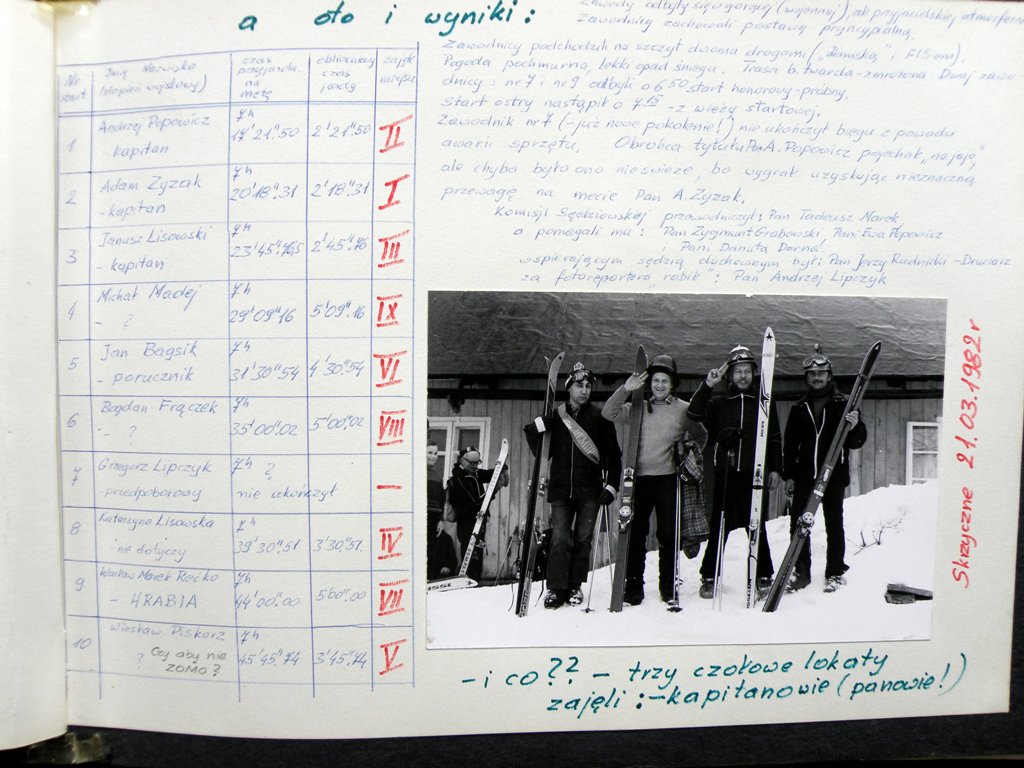 a oto i wyniki:
Zawody odbyły się w gorącej (wojennej), ale przyjacielskiej atmosferze
Zawodnicy zachowali postawę pryncypialną.
Zawodnicy podchodzili na szczyt dwoma drogami („damską” i FISem).
Pogoda pochmurna, lekki opad śniegu. Trasa b. twarda - zmrożona. Dwaj zawo-
dnicy: nr 7 i nr 9 odbyli o 6 50 start honorowy-próbny.
Start ostry nastąpił o 7 15 - z wieży startowej.
Zawodnik nr 7 (- już nowe pokolenie!) nie ukończył biegu z powodu
awarii sprzętu. Obrońca tytułu Pan A. Popowicz pojechał „na jajo”
ale chyba było ono nieświeże, bo wygrał uzyskując nieznaczną
przewagę na mecie Pan A. Zyzak.
Komisji Sędziowskiej przewodniczył: Pan Tadeusz Marek
a pomagali mu: Pan Zygmunt Grabowski Pani Ewa Popowicz
i Pani Danuta Dorna!
wspierającym sędzią duchownym był: Pan Jerzy Rudnicki - Druciarz
za fotoreportera „robił”: Pan Andrzej Lipczyk
Nr start. Imię Nazwisko (stopień wojskowy) czas przyjazdu na metę obliczeniowy czas jazdy zajęte miejsce
1 Andrzej Popowicz - kapitan 7h 17'21".50 2'21".50 II
2 Adam Zyzak - kapitan 7h 20'18".31 2'18".31 I
3 Janusz Lisowski - kapitan 7h 23'45".76,5 2'45".76 III
4 Michał Madej - ? 7h 29'09".16 5'09".16 IX
5 Jan Bagsik - porucznik 7h 31'30".54 4'30".54 VI
6 Bogdan Frączek - ? 7h 35'00".02 5'00".02 VIII
7 Grzegorz Lipczyk - przedpoborowy 7h ? nie ukończył –
8 Katarzyna Lisowska - nie dotyczy 7h 39'30".51 3'30".51 IV
9 Wacław Marek Rećko - HRABIA 7h 44'00".00 5'00".00 VII
10 Wiesław Piskorz ? Czy aby nie ZOMO? 7h 45'45".74 3'45".74 V
Skrzyczne 21.03.1982 r
- i co?? - trzy czołowe lokaty
zajęli: - kapitanowie (panowie!)